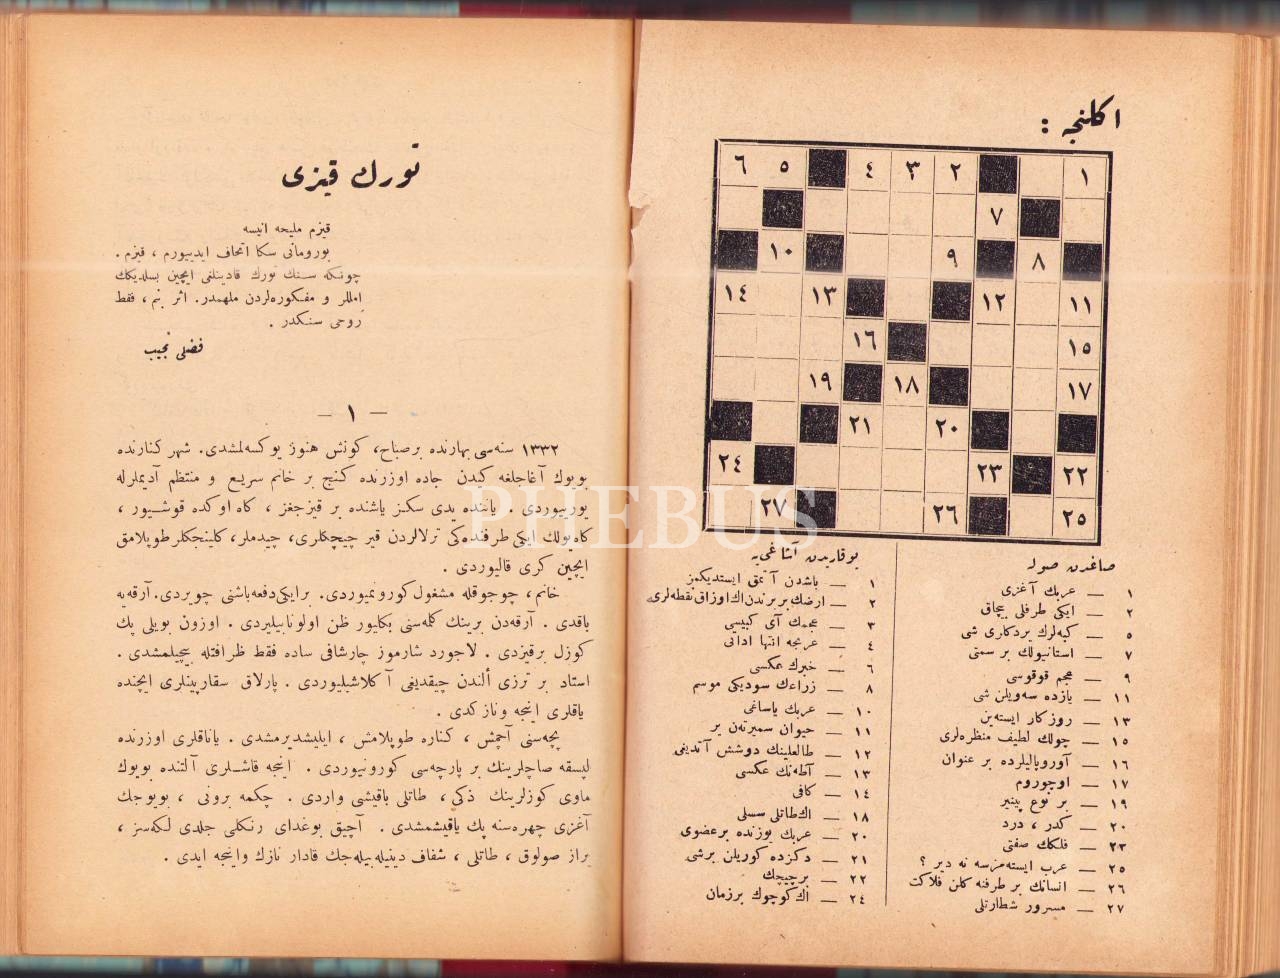 تورك قيزى
قيزم مليحه انيسه
بورومانى سكا اتحاف ايديبورم ، قيزم .
چونكه سنك تورك قادينلغى ايچين بسلديكك
امللر و مفكوره‌لردن ملهمدر. اثر بنم ، فقط
روحى سنكدر .
فضلى نجيب
— ١ —
١٣٣٢ سنه‌سى بهارنده برصباح، كونش هنوز يوكسه‌لمشدى. شهر كنارنده
بويوك آغاجلغه كيدن جاده اوزرنده كنج بر خانم سريع و منتظم آديملرله
يورييوردى . ياننده يدى سكز ياشنده بر قيزجغز ، كاه اوكده قوشيور ،
كاه يولك ايكى طرفنده‌كى ترلالردن قير چيچكلرى، چيدملر، كلينجكلر طوپلامق
ايچين كرى قاليوردى .
خانم ، چوجوقله مشغول كورونميوردى. برايكى دفعه باشنى چويردى. آرقه‌يه
باقدى . آرقه‌دن برينك كلمه‌سنى بكليور ظن اولونابيليردى . اوزون بويلى پك
كوزل برقيزدى . لاجورد شارموز چارشافى ساده فقط ظرافتله بيچيلمشدى .
استاد بر ترزى ألندن چيقديغى آكلاشيليوردى . پارلاق سقارپينلرى ايچنده
ياقلرى اينجه ونازكدى .
پچه‌سنى آچمش ، كناره طوپلامش ، ايليشديرمشدى . ياناقلرى اوزرنده
لپسقه صاچلرينك بر پارچه‌سى كورونيوردى . اينجه قاشلرى آلتنده بويوك
ماوى كوزلرينك ذكى ، طاتلى باقيشى واردى . چكمه برونى ، بويوجك
آغزى چهره‌سنه پك ياقيشمشدى . آچيق بوغداى رنكلى جلدى لكه‌سز ،
براز صولوق ، طاتلى ، شفاف دينيله‌بيله‌جك قادار نازك واينجه ايدى .
اكلنجه :
١ ٢ ٣ ٤ ٥ ٦
٧
٨ ٩ ١٠
١١ ١٢ ١٣ ١٤
١٥ ١٦
١٧ ١٨ ١٩
٢٠ ٢١
٢٢ ٢٣ ٢٤
٢٥ ٢٦ ٢٧
صاغدن صوله
١ — عربك آغزى
٢ — ايكى طرفلى بيچاق
٥ — كبه‌لرك بردكارى شى
٧ — استانبولك بر سمتى
٩ — عجم قوقوسى
١١ — يازده سه‌ويلن شى
١٣ — روزكار ايسته‌ين
١٥ — چولك لطيف منظره‌لرى
١٦ — آوروپاليلرده بر عنوان
١٧ — اوچوروم
١٩ — بر نوع پينير
٢٠ — كدر ، درد
٢٣ — فلكك صفتى
٢٥ — عرب ايسته‌مزسه نه دير ؟
٢٦ — انسانك بر طرفنه كلن فلاكت
٢٧ — مسرور شطارتلى
يوقاريدن آشاغى‌يه
١ — باشدن آتمق ايستديكمز
٢ — ارضك بربرندن اك اوزاق نقطه‌لرى
٣ — عجمك آى كبيسى
٤ — عربجه انتها اداتى
٦ — خبرك عكسى
٨ — زراعك سوديكى موسم
١٠ — عربك ياساغى
١١ — حيوان سميرتن ير
١٢ — طالعلينك دوشش آتديغى
١٣ — آطه‌نك عكسى
١٤ — كافى
١٨ — اك طاتلى سسلى
٢٠ — عربك يوزنده برعضوى
٢١ — دكزده كوريلن برشى
٢٢ — برچيچك
٢٤ — اك كوچوك برزمان
PHEBUS